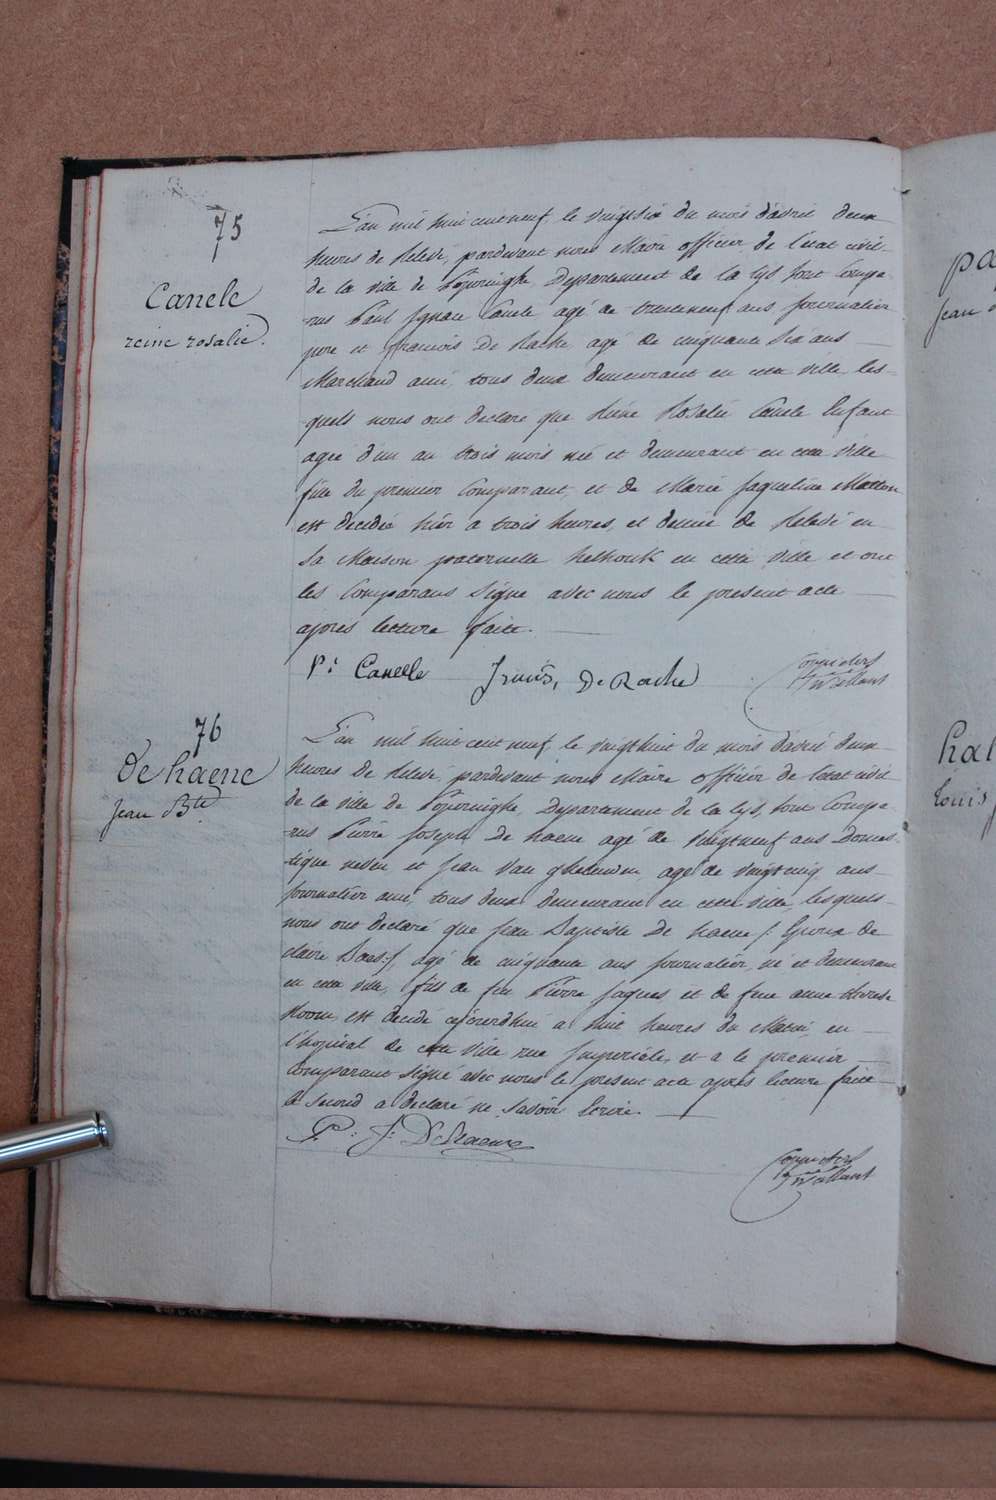 75
Canele
reine rosalie.
L'an mil huit cent neuf, le vingtsix du mois d'avril deux
heures de Relevé, pardevant nous Maire officier de l'etat civil
de la ville de Poperinghe, Departement de la Lys sont Compa-
rus Paul Ignace Canele agé de trenteneuf ans journalier
pere et francois De Rache agé de cinquante six ans
Marchand ami, tous deux demeurant en cette ville les-
quels nous ont declaré que Reine Rosalie Canele Enfant
agée d'un an trois mois née et demeurant en cette ville
fille du premier Comparant, et de Marie Jaqueline Matton
est decedée hier a trois heures et demie de Relevé en
sa Maison paternelle en cette ville et ont
les Comparans signé avec nous le present acte
après lecture faite.
P. I. Canelle Fruncis, De Rache
76
De haene
Jean Bte.
L'an mil huit cent neuf, le vingthuit du mois d'avril deux
heures de Relevé, pardevant nous Maire officier de l'etat civil
de la ville de Poperinghe, Departement de la Lys, sont Compa-
rus Pierre Joseph De haene agé de vingtneuf ans Domes-
tique neveu et Jean Van agé de vingtcinq ans
journalier ami, tous deux demeurant en cette ville, lesquels
nous ont declaré que Jean Baptiste De haene /: Epoux de
claire Baes :/ agé de cinquante ans journalier, né et demeurant
en cette ville, fils de feu Pierre Jaques et de feue anne therese
est decedé cejourd'hui a huit heures du Matin, en
l'hopital de cette ville rue Imperiale, et a le premier
Comparant signé avec nous le present acte après lecture faite
le second a declaré ne savoir Ecrire.
P: J: D'Haene
pa
Jean
hal
Louis